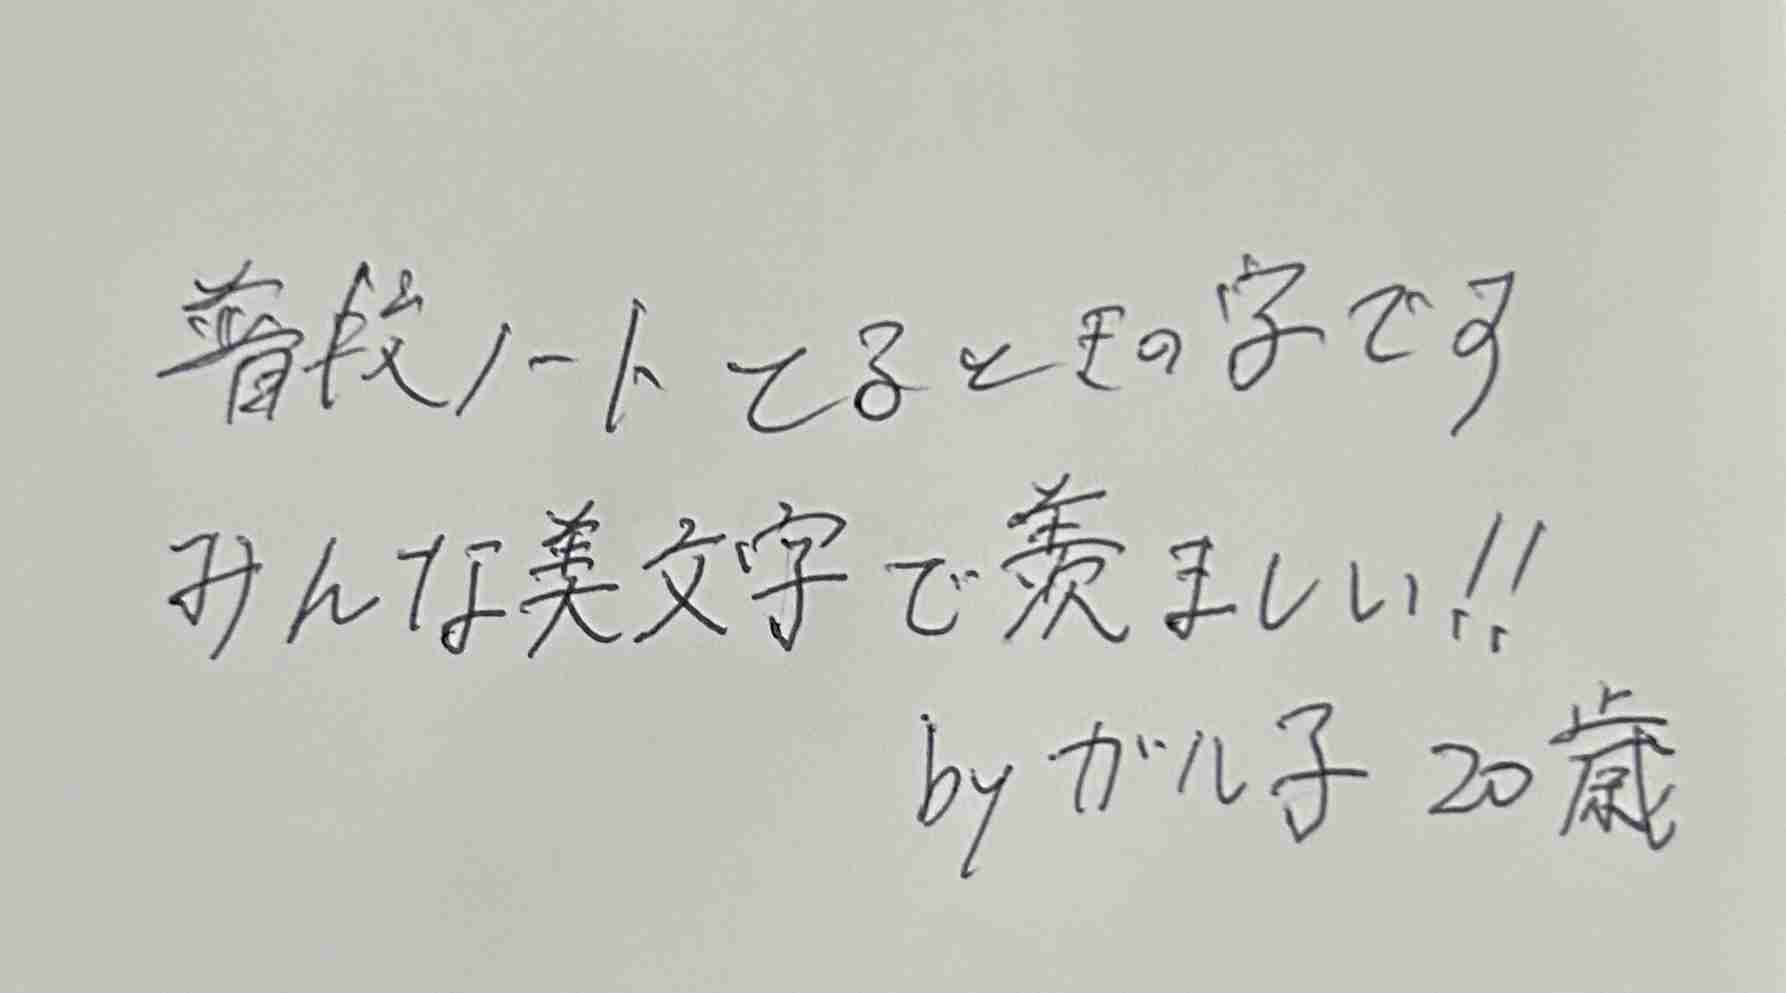 普段ノートてるときの字です
みんな美文字で羨ましい!!
by ガル子 20歳